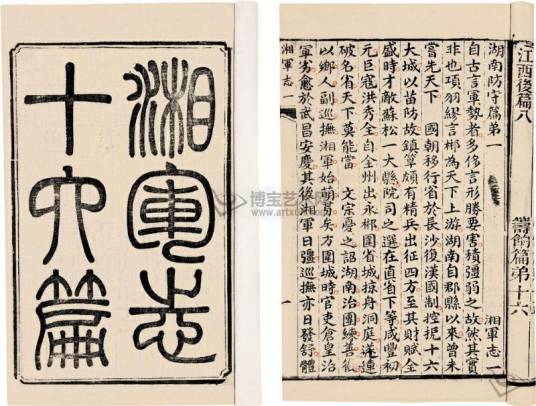 湘軍志
十六篇
江西後篇八
籌餉篇第十六
湖南防守篇第一 湘軍志一
自古言軍勢者多侈言形勝要害積彊弱之故然其實
非也項羽繆言郴為天下上游湖南自郡縣以來曾未
嘗先天下 國朝移行省於長沙復漢國制控扼十六
大城以苗防故鎮筸頗有精兵出征四方至其財賦全
盛時才敵蘇松一大縣院司之選在直省下等咸豐初
元巨寇洪秀全自全州出永郴圍省城掠舟洞庭遂連
破名省天下莫能當 文宗憂之詔湖南治團練善化
以鄉人副巡撫湘軍始萌芽矣方圍城時官吏倉皇治
軍劣愈於武昌安慶其後湘軍日彊巡撫亦日發舒體
湘軍志一 一
博宝艺术